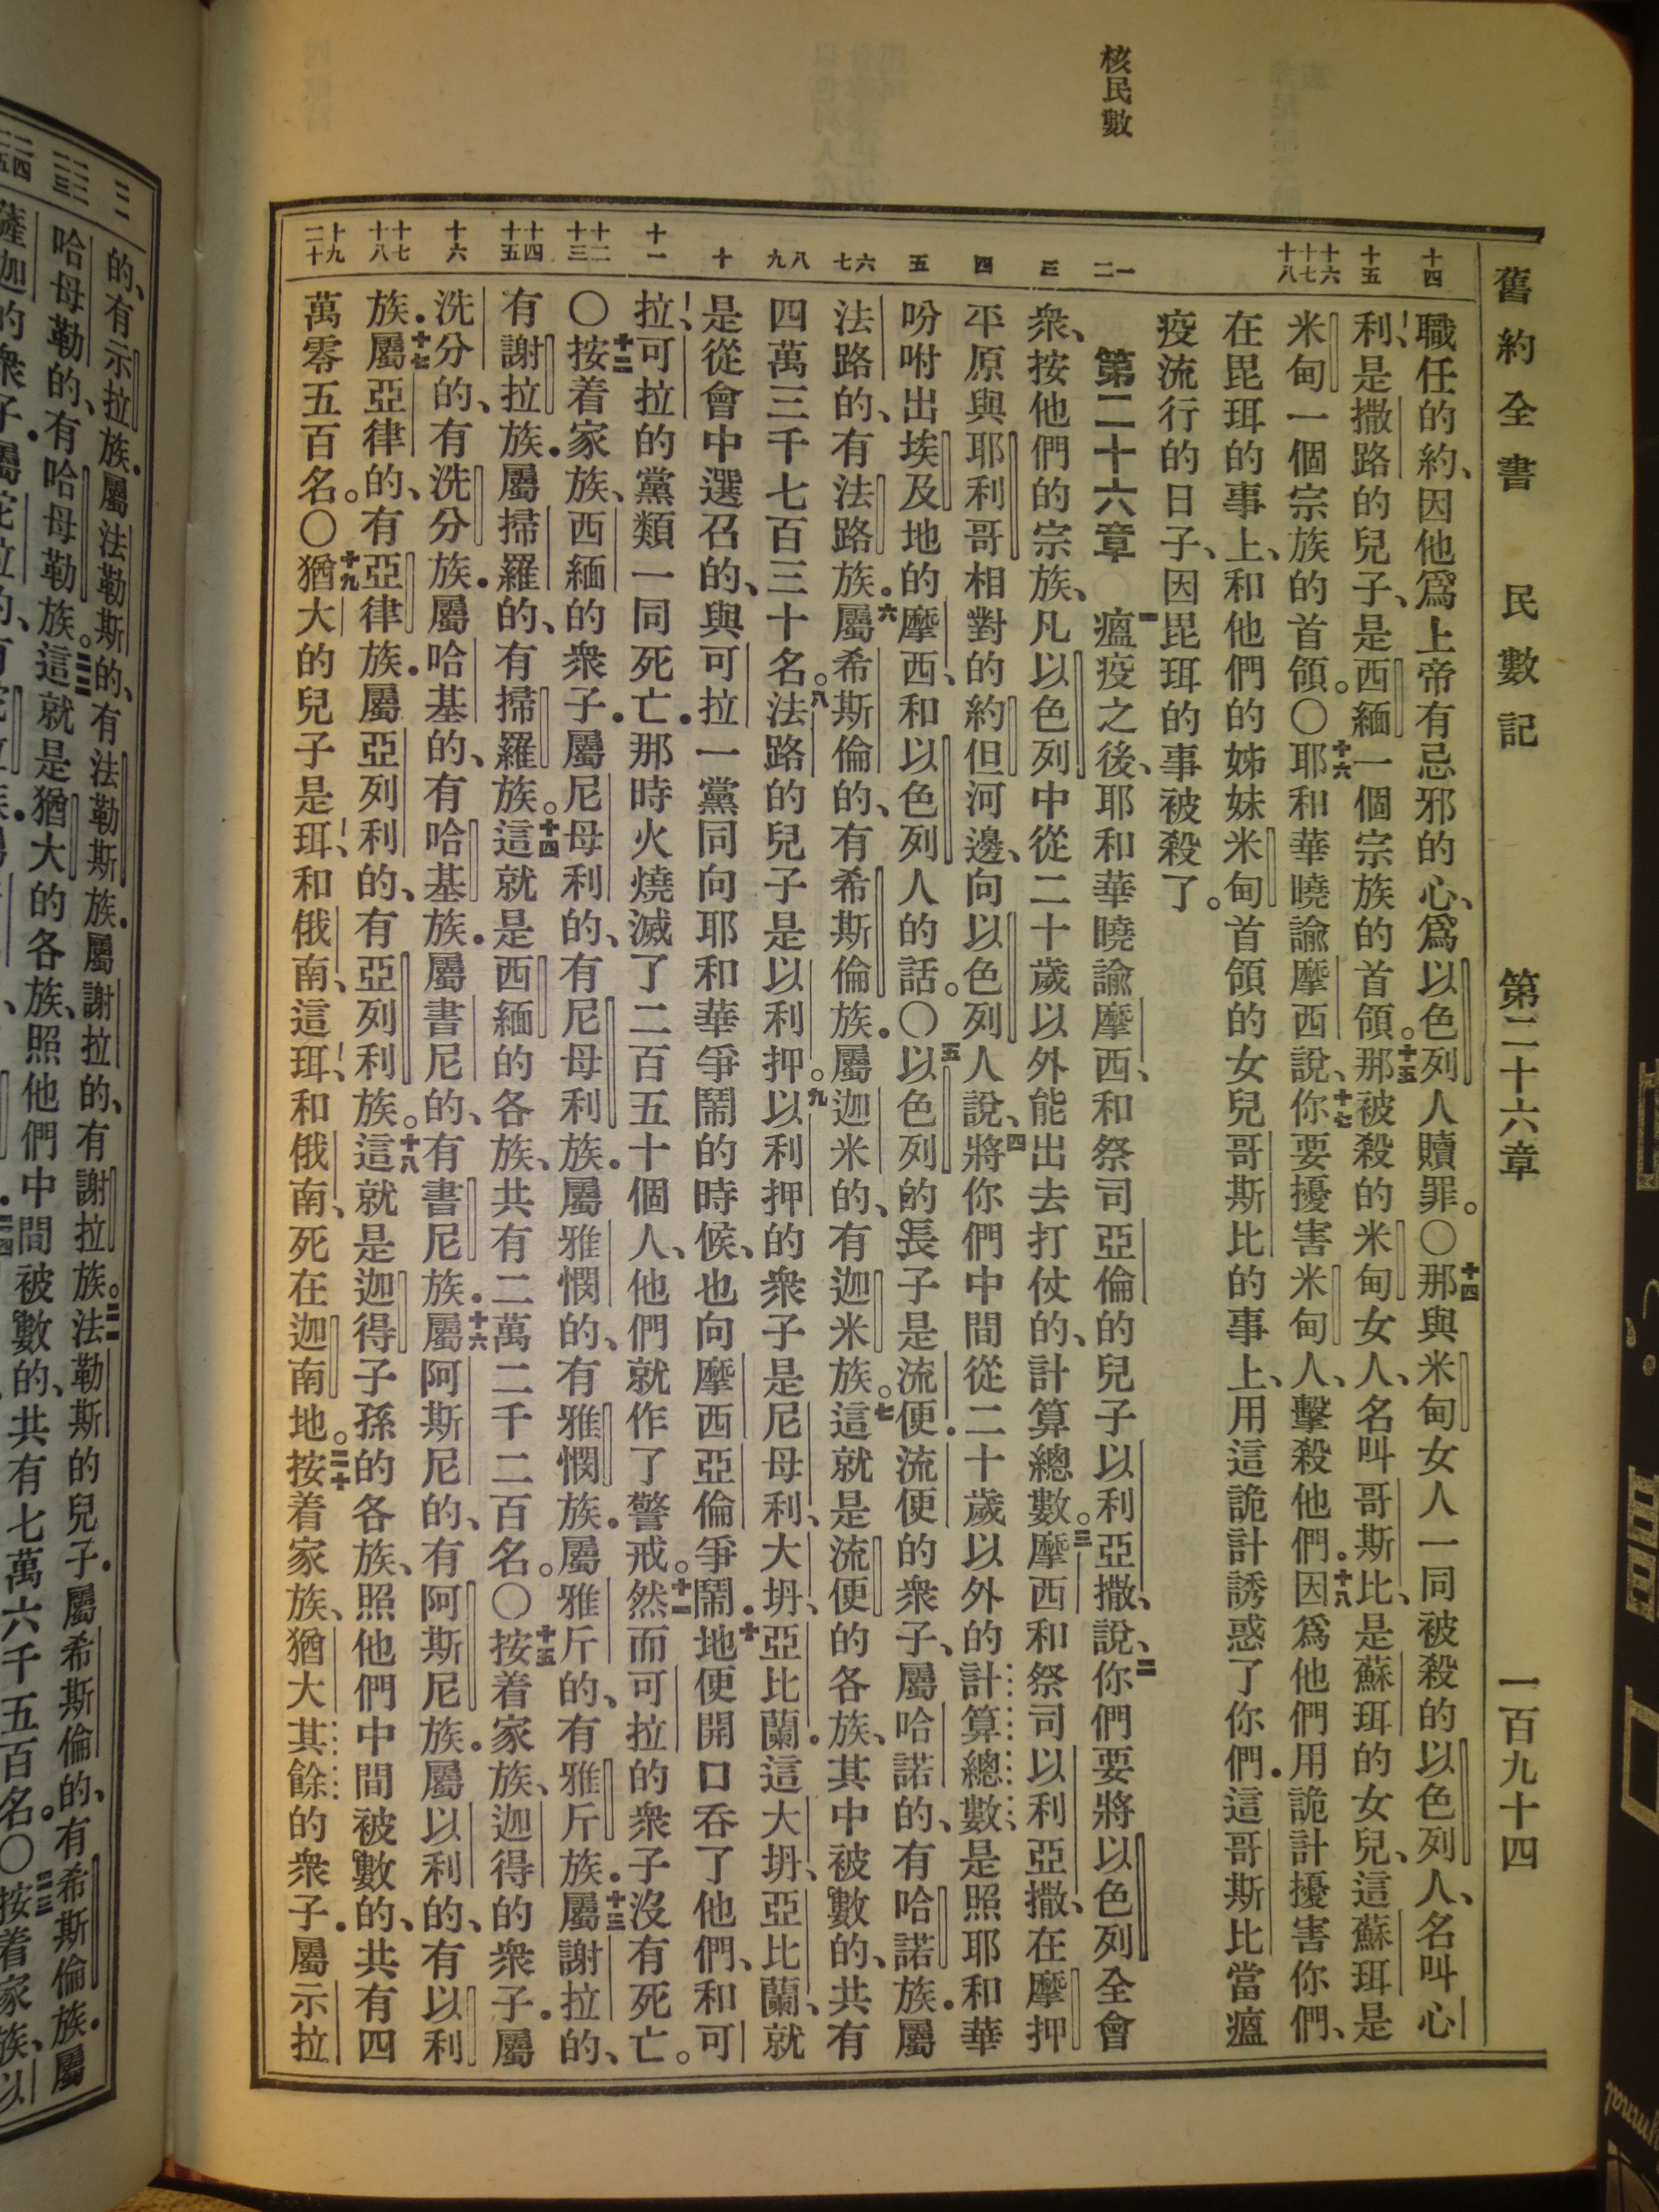 舊約全書 民數記 第二十六章 一百九十四
核民數
十四
職任的約、因他爲上帝有忌邪的心、爲以色列人贖罪。〇十四那與米甸女人一同被殺的以色列人、名叫心
十五
利、是撒路的兒子、是西緬一個宗族的首領。十五那被殺的米甸女人、名叫哥斯比、是蘇珥的女兒、這蘇珥是
十六 十七 十八
米甸一個宗族的首領。〇十六耶和華曉諭摩西說、十七你要擾害米甸人、擊殺他們。十八因爲他們用詭計擾害你們、
在毘珥的事上、和他們的姊妹米甸首領的女兒哥斯比的事上、用這詭計誘惑了你們．這哥斯比當瘟
疫流行的日子、因毘珥的事被殺了。
一 二
第二十六章 一瘟疫之後、耶和華曉諭摩西、和祭司亞倫的兒子以利亞撒、說、二你們要將以色列全會
三
衆、按他們的宗族、凡以色列中從二十歲以外能出去打仗的、計算總數。三摩西和祭司以利亞撒、在摩押
四
平原與耶利哥相對的約但河邊、向以色列人說、四將你們中間從二十歲以外的計算總數、是照耶和華
五
吩咐出埃及地的摩西、和以色列人的話。〇五以色列的長子是流便．流便的衆子、屬哈諾的、有哈諾族．屬
六 七
法路的、有法路族．六屬希斯倫的、有希斯倫族．屬迦米的、有迦米族。七這就是流便的各族、其中被數的、共有
八 九
四萬三千七百三十名。八法路的兒子是以利押。九以利押的衆子是尼母利、大坍、亞比蘭．這大坍、亞比蘭、就
十
是從會中選召的、與可拉一黨同向耶和華爭鬧的時候、也向摩西亞倫爭鬧．十地便開口吞了他們、和可
十一
拉、可拉的黨類一同死亡．那時火燒滅了二百五十個人、他們就作了警戒。十一然而可拉的衆子沒有死亡。
十二 十三
〇十二按着家族、西緬的衆子．屬尼母利的、有尼母利族．屬雅憫的、有雅憫族．屬雅斤的、有雅斤族．十三屬謝拉的、
十四 十五
有謝拉族．屬掃羅的、有掃羅族。十四這就是西緬的各族、共有二萬二千二百名。〇十五按着家族、迦得的衆子．屬
十六
洗分的、有洗分族．屬哈基的、有哈基族．屬書尼的、有書尼族．十六屬阿斯尼的、有阿斯尼族．屬以利的、有以利
十七 十八
族．十七屬亞律的、有亞律族．屬亞列利的、有亞列利族。十八這就是迦得子孫的各族、照他們中間被數的、共有四
十九 二十
萬零五百名。〇十九猶大的兒子是珥、和俄南、這珥、和俄南、死在迦南地。二十按着家族、猶大其餘的衆子．屬示拉
的、有示拉族．屬法勒斯的、有法勒斯族．屬謝拉的、有謝拉族。二一法勒斯的兒子．屬希斯倫的、有希斯倫族．屬
哈母勒的、有哈母勒族。二二這就是猶大的各族、照他們中間被數的、共有七萬六千五百名。〇二三按着家族、以